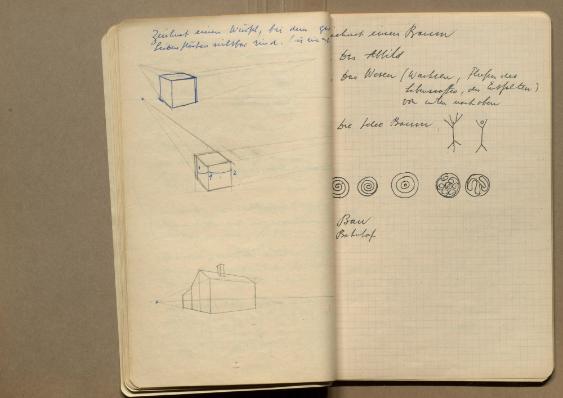 Zeichnet einen Würfel, bei dem
Seitenflächen sichtbar sind.
1 2
zeichnet einen Baum
Das Abbild
Das Wesen (Wachsen, Fließen des
Lebenssaftes, des Entfalten)
von unten nach oben
Die Idee Baum
Bau
Bahnhof